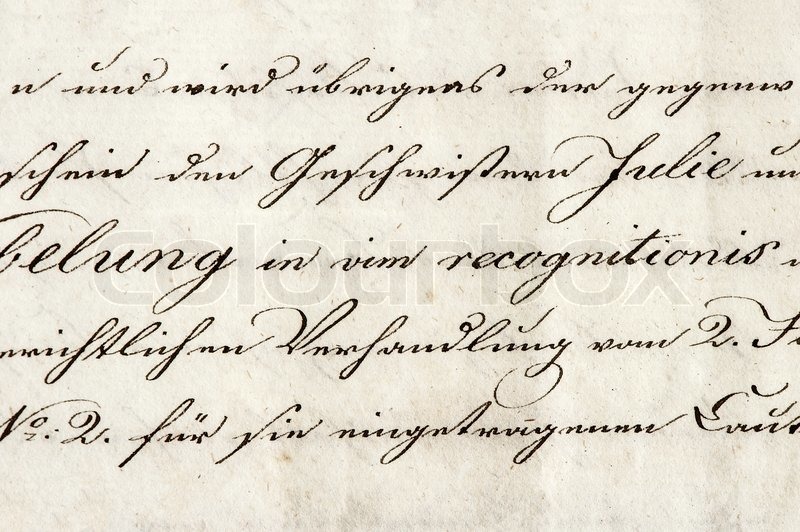 n und wird übrigens der gegenw
schein den Geschwistern Julie un
belung in vim recognitionis
erichtlichen Verhandlung vom 2. Fe
No: 2. für sie eingetragenen Caut
colourbox